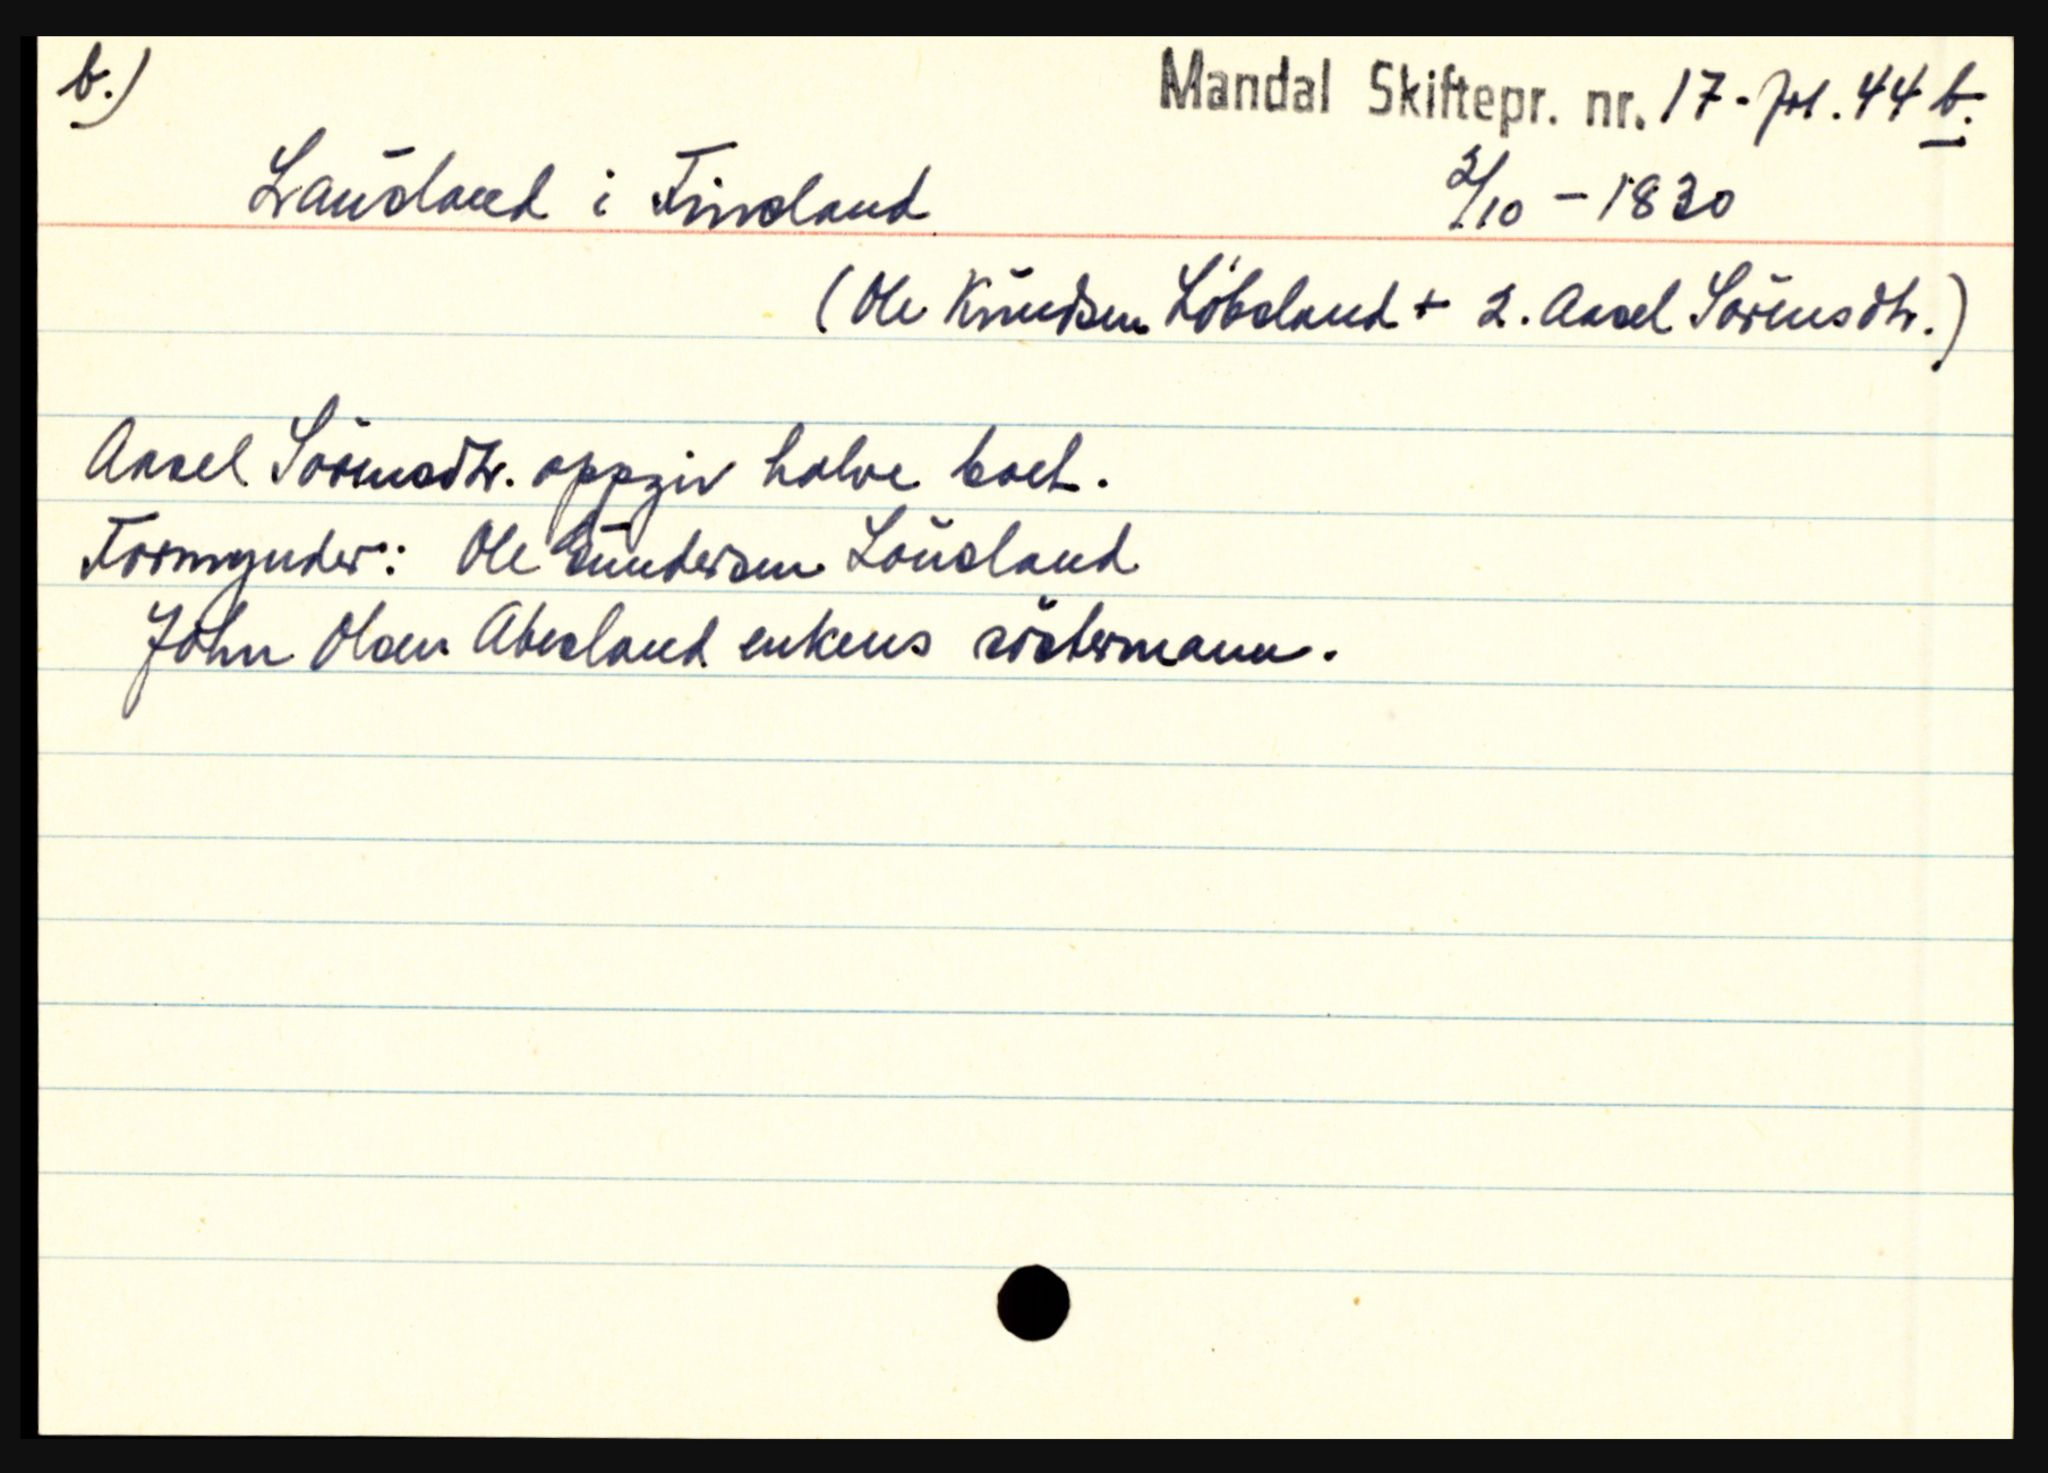 b.)
Mandal Skiftepr. nr. 17 - fol. 44 b.
Lausland i Finsland
2/10 - 1830
(Ole Knudsen Löbsland + 2. Aasel Sörensdtr.)
Aasel Sörensdtr. oppgiv halve boet.
Formynder: Ole Gundersen Lousland
John Olsen Abesland enkens söstermann.